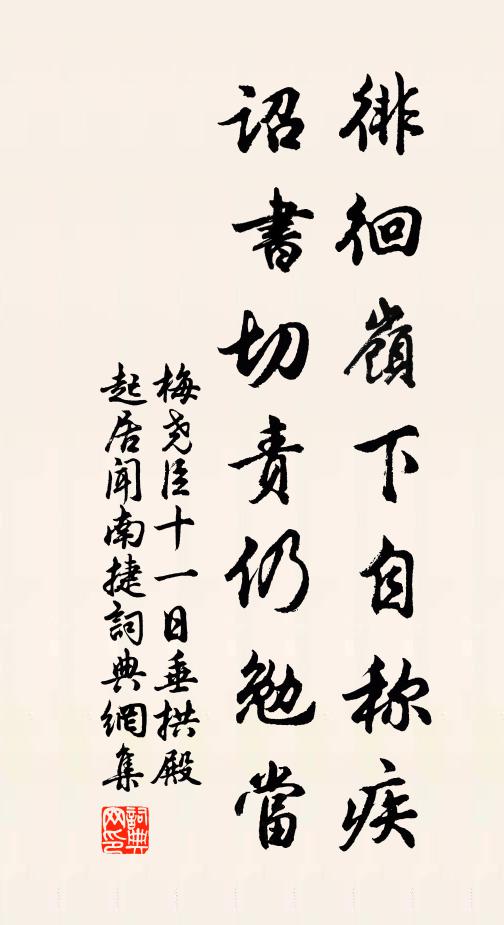 徘徊嶺下自称疾
詔書切責仍勉當
梅尧臣十一日垂拱殿
起居闻南捷詞典網集
詞典
网印